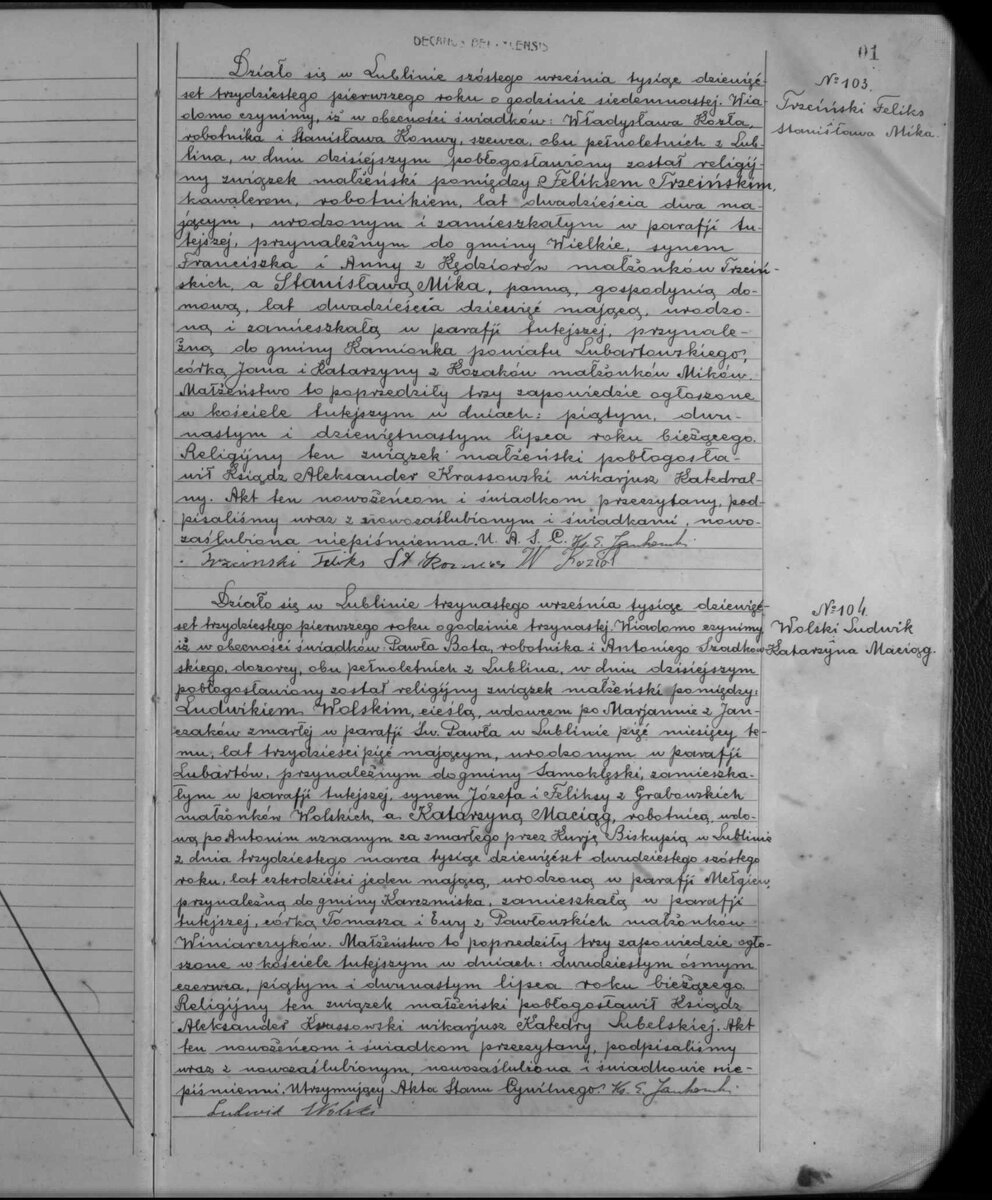 DECANUS
01
№ 103.
Trzciński Feliks
Stanisława Mika.
Działo się w Lublinie szóstego września tysiąc dziewięć-
set trzydziestego pierwszego roku o godzinie siedemnastej. Wia-
domo czynimy, iż w obecności świadków: Władysława Kozła,
robotnika i Stanisława Konwy, szewca, obu pełnoletnich z Lub-
lina, w dniu dzisiejszym pobłogosławiony został religij-
ny związek małżeński pomiędzy Feliksem Trzcińskim,
kawalerem, robotnikiem, lat dwadzieścia dwa ma-
jącym, urodzonym i zamieszkałym w parafji tu-
tejszej, przynależnym do gminy Wielkie, synem
Franciszka i Anny z Kędziorów małżonków Trzciń-
skich, a Stanisławą Mika, panną, gospodynią do-
mową, lat dwadzieścia dziewięć mającą, urodzo-
ną i zamieszkałą w parafji tutejszej, przynale-
żną do gminy Kamionka powiatu Lubartowskiego,
córką Jana i Katarzyny z Kozaków małżonków Mików.
Małżeństwo to poprzedziły trzy zapowiedzie ogłoszone
w kościele tutejszym w dniach: piątym, dwu-
nastym i dziewiętnastym lipca roku bieżącego.
Religijny ten związek małżeński pobłogosła-
wił Ksiądz Aleksander Krassowski wikarjusz Katedral-
ny. Akt ten nowożeńcom i świadkom przeczytany, pod-
pisaliśmy wraz z nowozaślubionym i świadkami, nowo-
zaślubiona niepiśmienna. U. A. S. C. Ks. E. Jankowski
Trzciński Feliks St W Kozioł
№ 104.
Wolski Ludwik
Katarzyna Maciąg.
Działo się w Lublinie trzynastego września tysiąc dziewięć-
set trzydziestego pierwszego roku o godzinie trzynastej. Wiadomo czynimy,
iż w obecności świadków Pawła Bota, robotnika i Antoniego Szadkow-
skiego, dozorcy, obu pełnoletnich z Lublina, w dniu dzisiejszym
pobłogosławiony został religijny związek małżeński pomiędzy:
Ludwikiem Wolskim, cieślą, wdowcem po Marjannie z Jan-
czaków zmarłej w parafji Św. Pawła w Lublinie pięć miesięcy te-
mu, lat trzydzieści pięć mającym, urodzonym w parafji
Lubartów, przynależnym do gminy Samoklęski, zamieszka-
łym w parafji tutejszej, synem Józefa i Feliksy z Grabowskich
małżonków Wolskich, a Katarzyną Maciąg, robotnicą, wdo-
wą po Antonim uznanym za zmarłego przez Kurję Biskupią w Lublinie
z dnia trzydziestego marca tysiąc dziewięćset dwudziestego szóstego
roku, lat czterdzieści jeden mającą, urodzoną w parafji Mełgiew,
przynależną do gminy Karczmiska, zamieszkałą w parafji
tutejszej, córką Tomasza i Ewy z Pawłowskich małżonków
Winiarczyków. Małżeństwo to poprzedziły trzy zapowiedzie ogło-
szone w kościele tutejszym w dniach: dwudziestym ósmym
czerwca, piątym i dwunastym lipca roku bieżącego.
Religijny ten związek małżeński pobłogosławił Ksiądz
Aleksander Krassowski wikarjusz Katedry Lubelskiej. Akt
ten nowożeńcom i świadkom przeczytany, podpisaliśmy
wraz z nowozaślubionym, nowozaślubiona i świadkowie nie-
piśmienni. Utrzymujący Akta Stanu Cywilnego: Ks. E. Jankowski
Ludwik Wolski